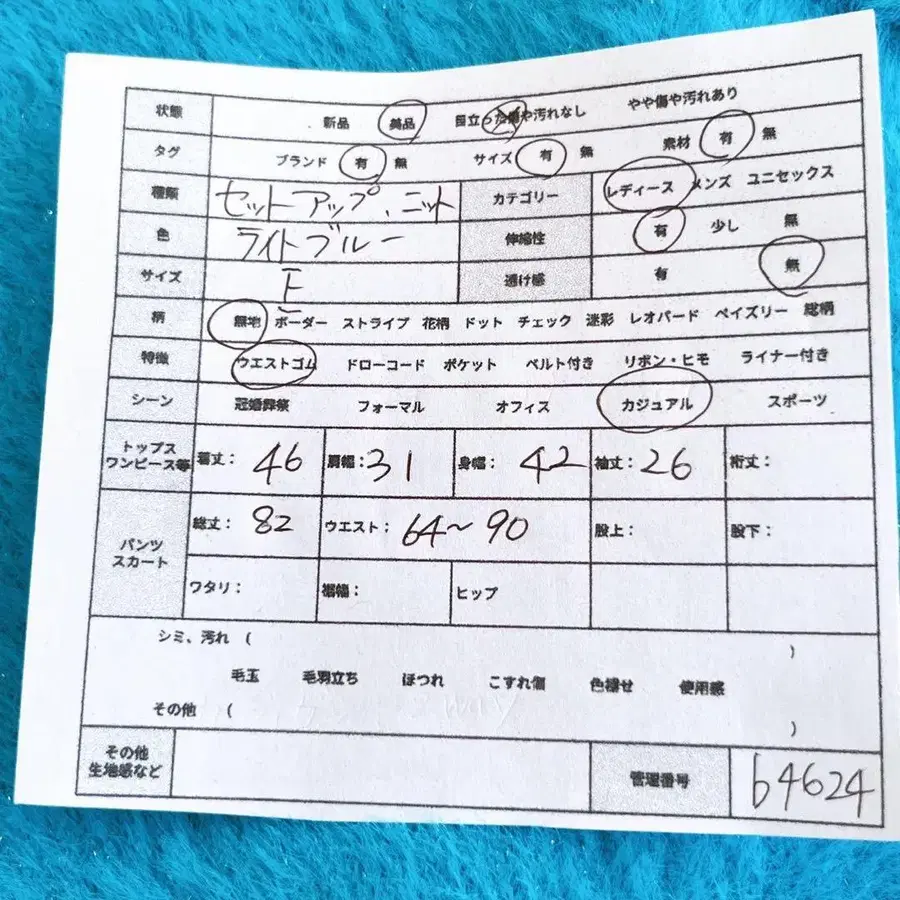 状態 新品 美品 目立った傷や汚れなし やや傷や汚れあり
タグ ブランド 有 無 サイズ 有 無 素材 有 無
種類 セットアップ、ニット カテゴリー レディース メンズ ユニセックス
色 ライトブルー 伸縮性 有 少し 無
サイズ F 透け感 有 無
柄 無地 ボーダー ストライプ 花柄 ドット チェック 迷彩 レオパード ペイズリー 総柄
特徴 ウエストゴム ドローコード ポケット ベルト付き リボン・ヒモ ライナー付き
シーン 冠婚葬祭 フォーマル オフィス カジュアル スポーツ
トップス
ワンピース等 着丈: 46 肩幅: 31 身幅: 42 袖丈: 26 裄丈:
パンツ
スカート
総丈: 82 ウエスト: 64~90 股上: 股下:
ワタリ: 裾幅: ヒップ
シミ、汚れ ( )
毛玉 毛羽立ち ほつれ こすれ傷 色褪せ 使用感
その他 ( )
その他
生地感など 管理番号 b4624